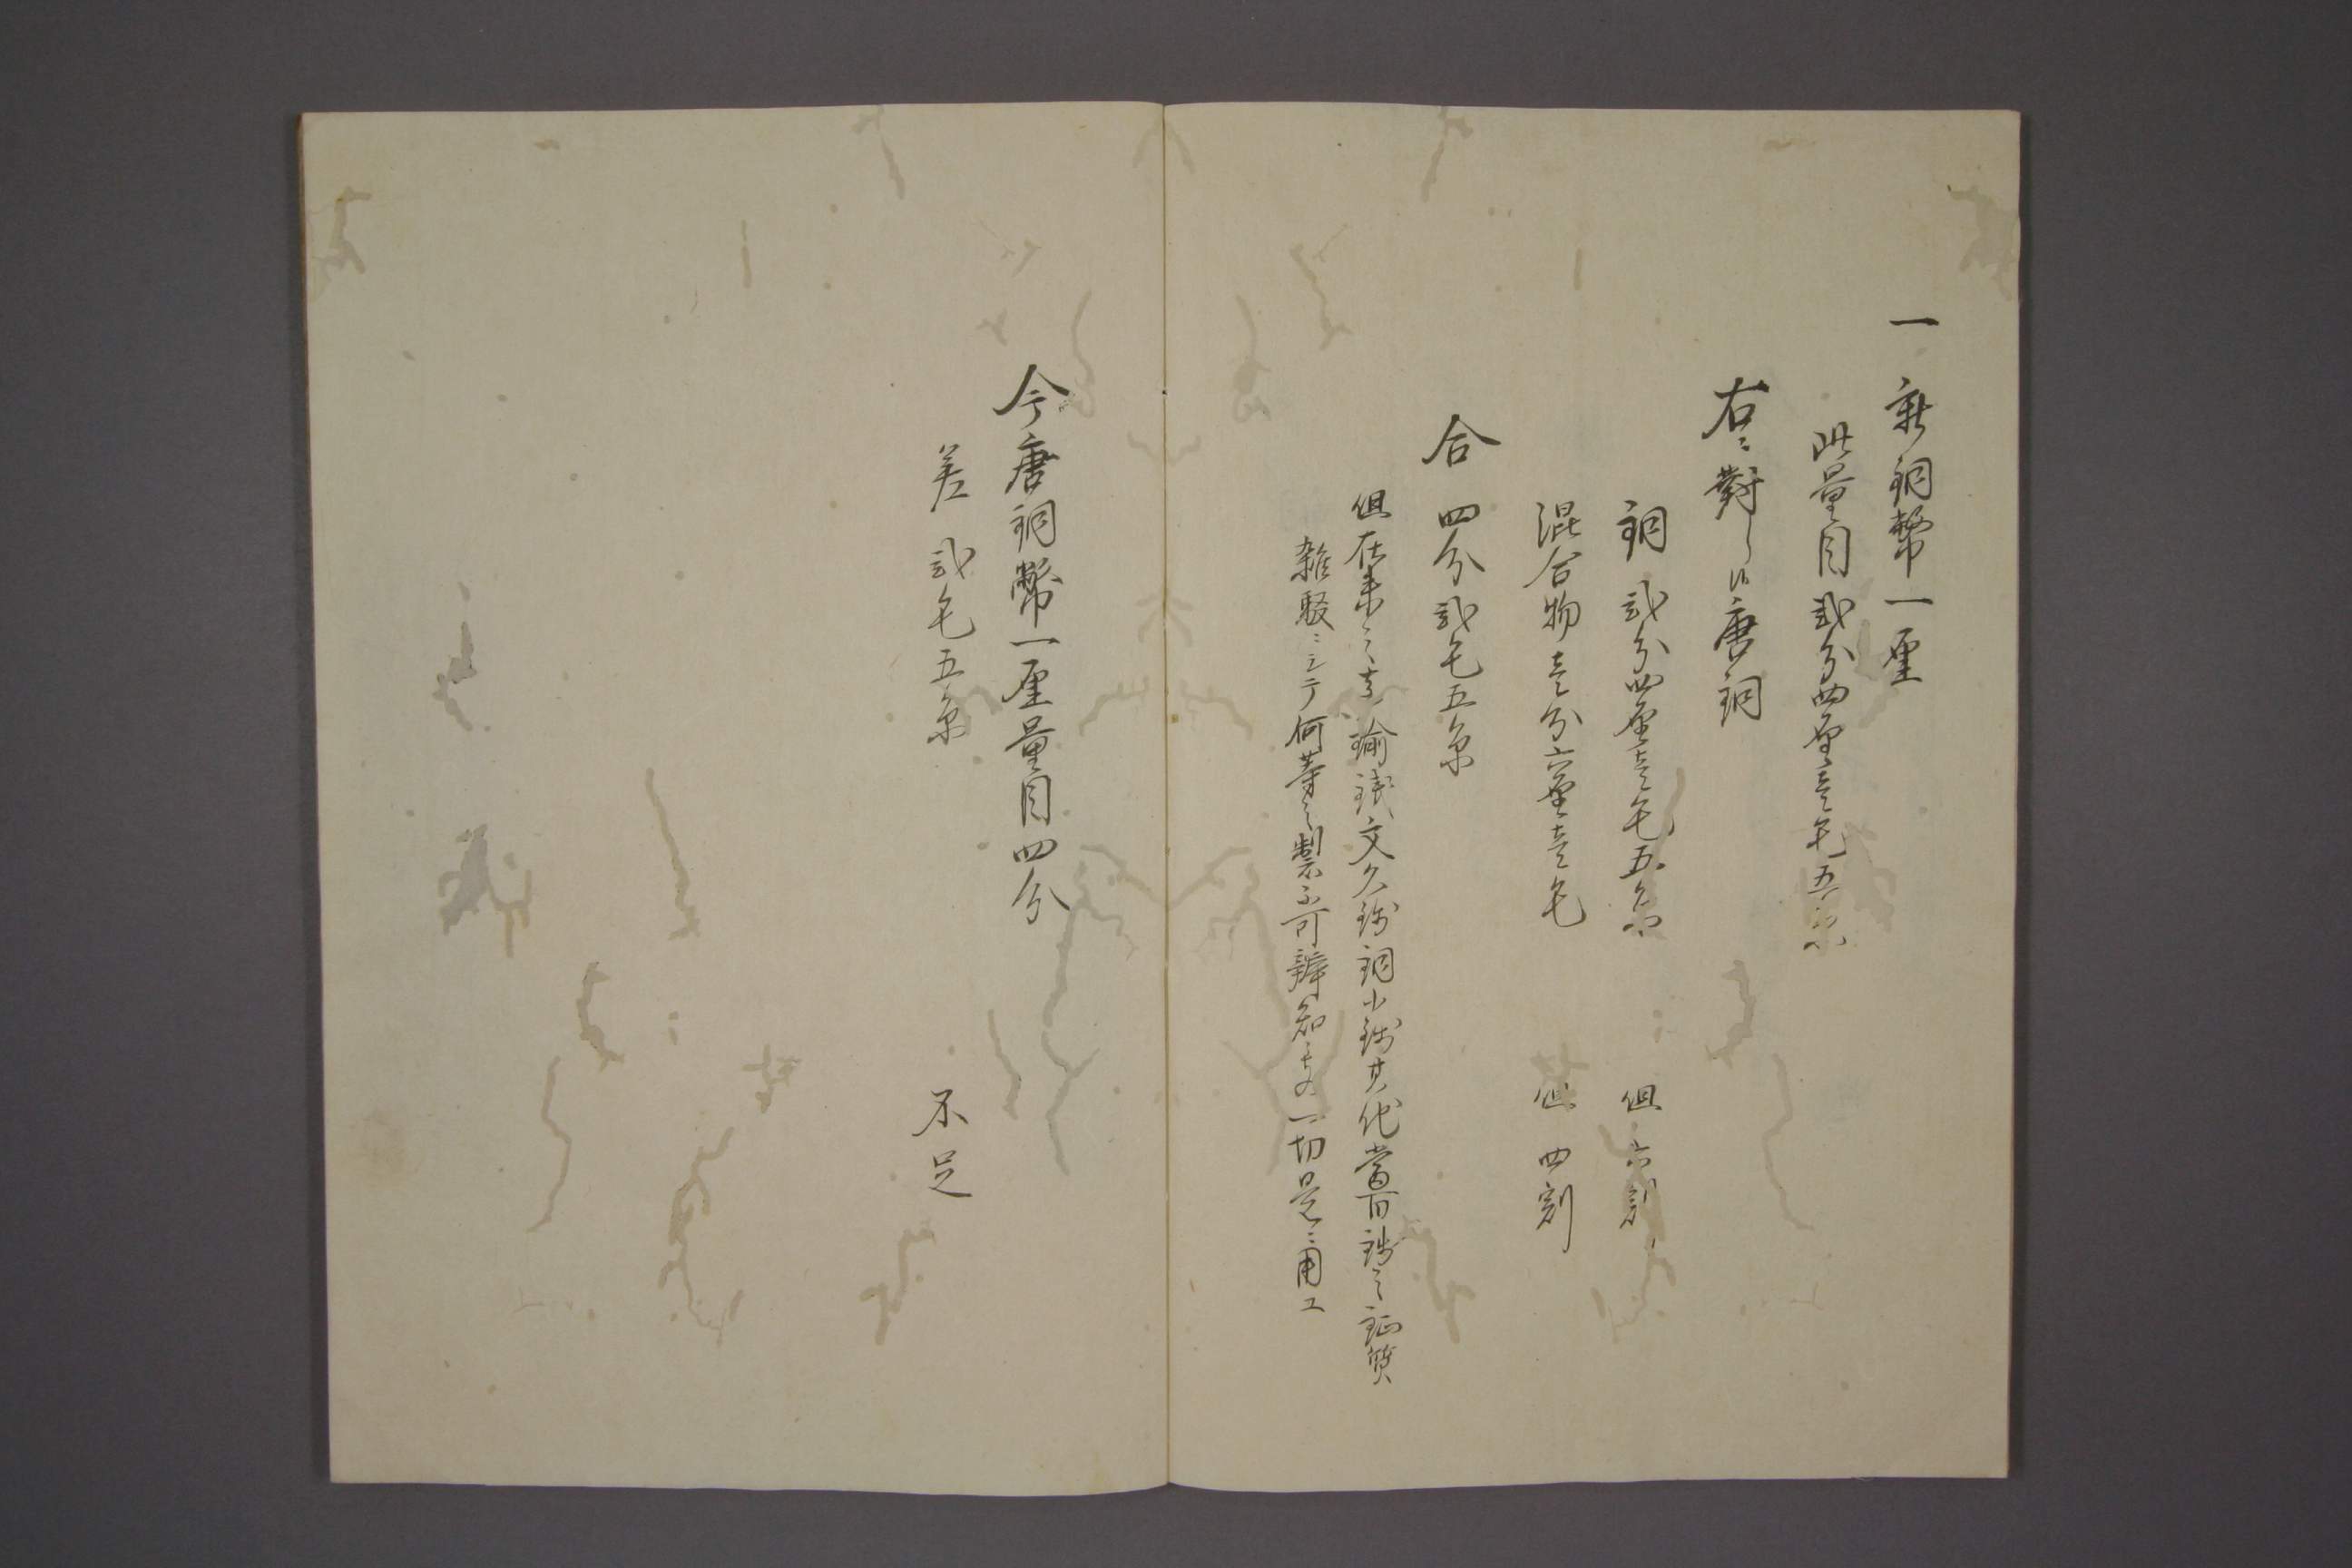 一 新銅幣一厘
此量目 弐分四厘壱毛五糸
右ニ對シ候唐銅
銅 弐分四厘壱毛五糸 但 六割
混合物 壱分六厘壱毛 但 四割
合 四分弐毛五糸
但在来之 鍮銭文久銭銅小銭其他當百銭之証質
雑駁ニシテ何等之製不可辨知ニ付一切是ニ用ユ
今唐銅幣一厘量目四分
差 弐毛五糸 不足